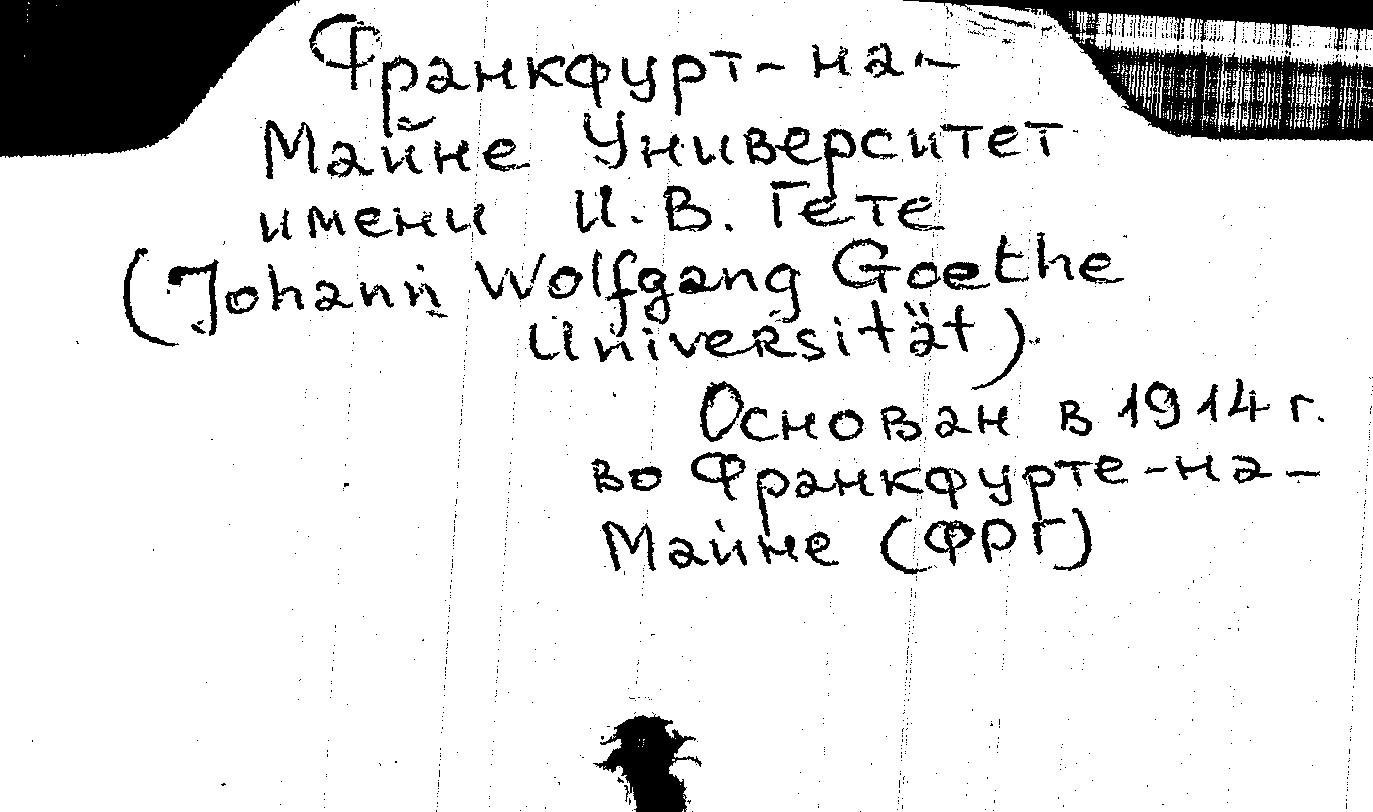 Франкфурт-на-
Майне Университет
имени И.В. Гете
(Johann Wolfgang Goethe
Universität)
Основан в 1914 г.
во Франкфурте-на-
Майне (ФРГ)